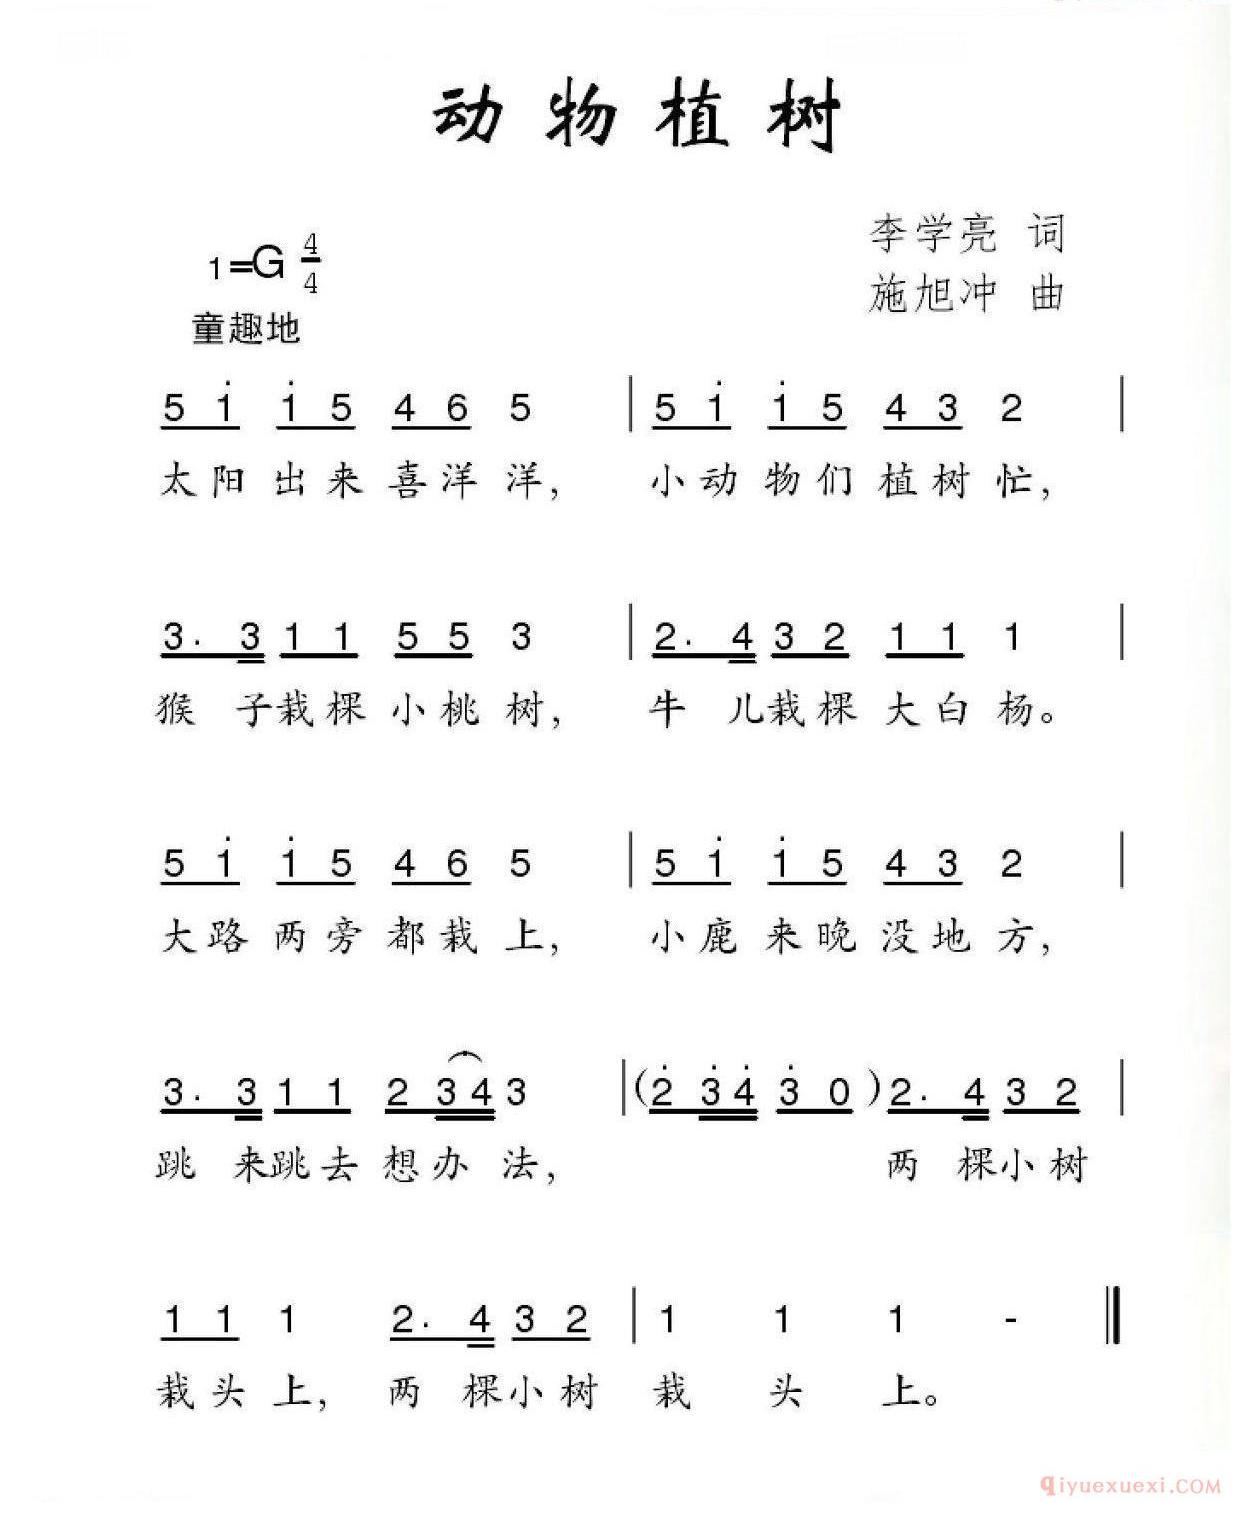 动物植树
李学亮 词
1=G 4/4
施旭冲 曲
童趣地
5 i̇ i̇ 5 4 6 5 | 5 i̇ i̇ 5 4 3 2 |
太阳 出来 喜洋 洋, 小动 物们 植树 忙,
3. 3 1 1 5 5 3 | 2. 4 3 2 1 1 1 |
猴 子栽棵 小桃 树, 牛 儿栽棵 大白 杨。
5 i̇ i̇ 5 4 6 5 | 5 i̇ i̇ 5 4 3 2 |
大路 两旁 都栽 上, 小鹿 来晚 没地 方,
3. 3 1 1 2 3 4 3 | (2̇ 3̇ 4̇ 3̇ 0) 2. 4 3 2 |
跳 来跳去 想办 法, 两 棵小树
1 1 1 2. 4 3 2 | 1 1 1 - ‖
栽头 上, 两 棵小树 栽 头 上。
qiyuexuexi.COM